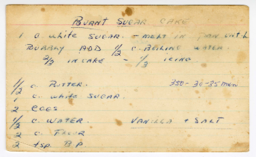 BURNT SUGAR CAKE
1 c white SUGAR - MELT IN PAN until
BURNLY ADD 1/2 c BOILING WATER.
2/3 IN CAKE - 1/3 ICING
1/2 c. BUTTER. 350 - 30-35 min
1 c. white SUGAR.
2 EGGS
1/2 c. WATER. VANILLA + SALT
2 c. FLOUR
2 tsp. B.P.